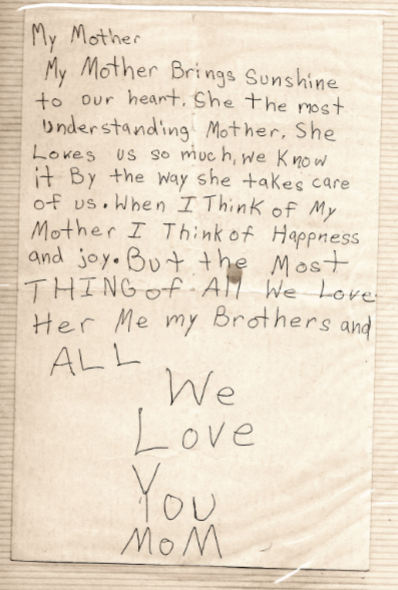 My Mother
My Mother Brings Sunshine
to our heart. She the most
understanding Mother. She
Loves us so much, we Know
it By the way she takes care
of us. When I Think of My
Mother I Think of Happness
and joy. But the Most
THING of All We Love
Her Me my Brothers and
ALL
We
Love
You
MoM